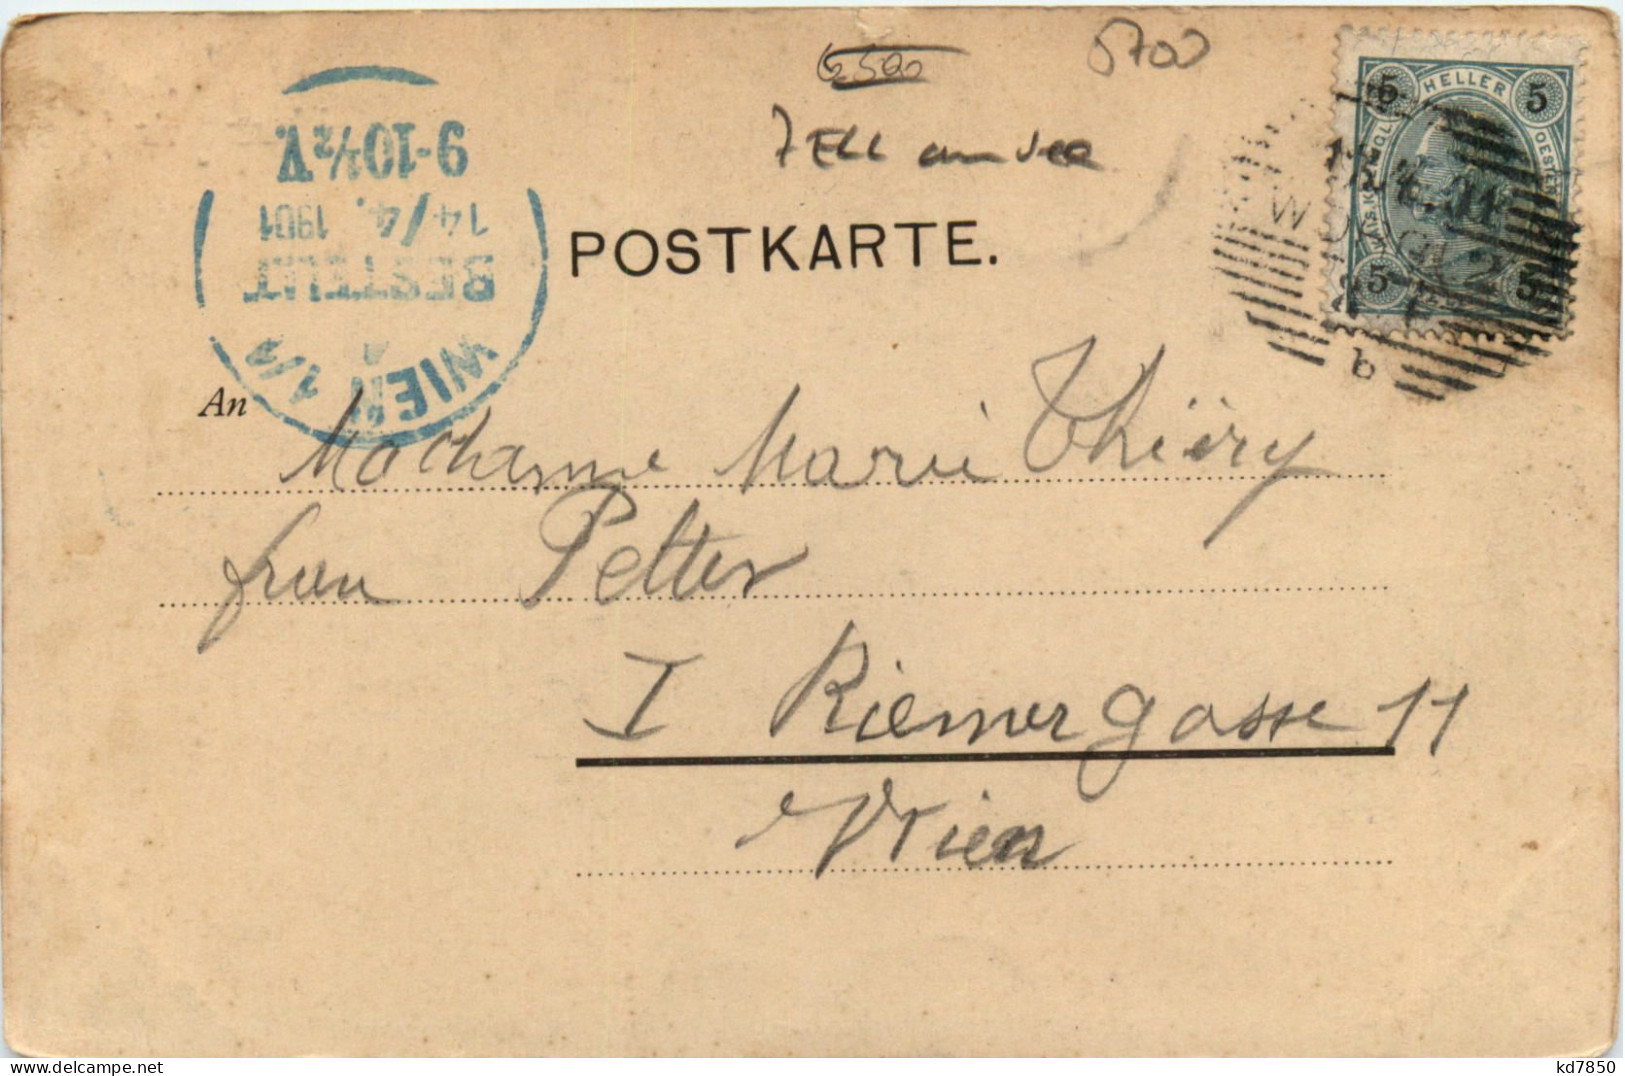 6500
5700
Zell am See
POSTKARTE.
5 HELLER 5
5 5
WÖRGL 2
b
9-10½V.
14/4. 1901
BESTELLT
WIEN 1/1
An
Madame Marie Thiéry
frau Petter
I Riemergasse 11
Wien
kd7850